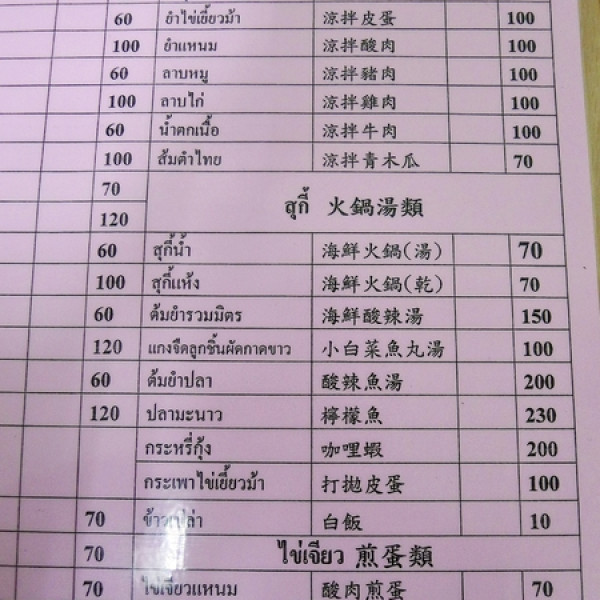 60 ยำไข่เยี้ยวม้า 涼拌皮蛋 100
100 ยำแหนม 涼拌酸肉 100
60 ลาบหมู 涼拌豬肉 100
100 ลาบไก่ 涼拌雞肉 100
60 น้ำตกเนื้อ 涼拌牛肉 100
100 ส้มตำไทย 涼拌青木瓜 70
70
สุกี้ 火鍋湯類
120
60 สุกี้น้ำ 海鮮火鍋(湯) 70
100 สุกี้แห้ง 海鮮火鍋(乾) 70
60 ต้มยำรวมมิตร 海鮮酸辣湯 150
120 แกงจืดลูกชิ้นผัดกาดขาว 小白菜魚丸湯 100
60 ต้มยำปลา 酸辣魚湯 200
120 ปลามะนาว 檸檬魚 230
กระหรี่กุ้ง 咖哩蝦 200
กระเพาไข่เยี้ยวม้า 打拋皮蛋 100
70 ข้าวเปล่า 白飯 10
70 ไข่เจียว 煎蛋類
70 ไข่เจียวแหนม 酸肉煎蛋 70